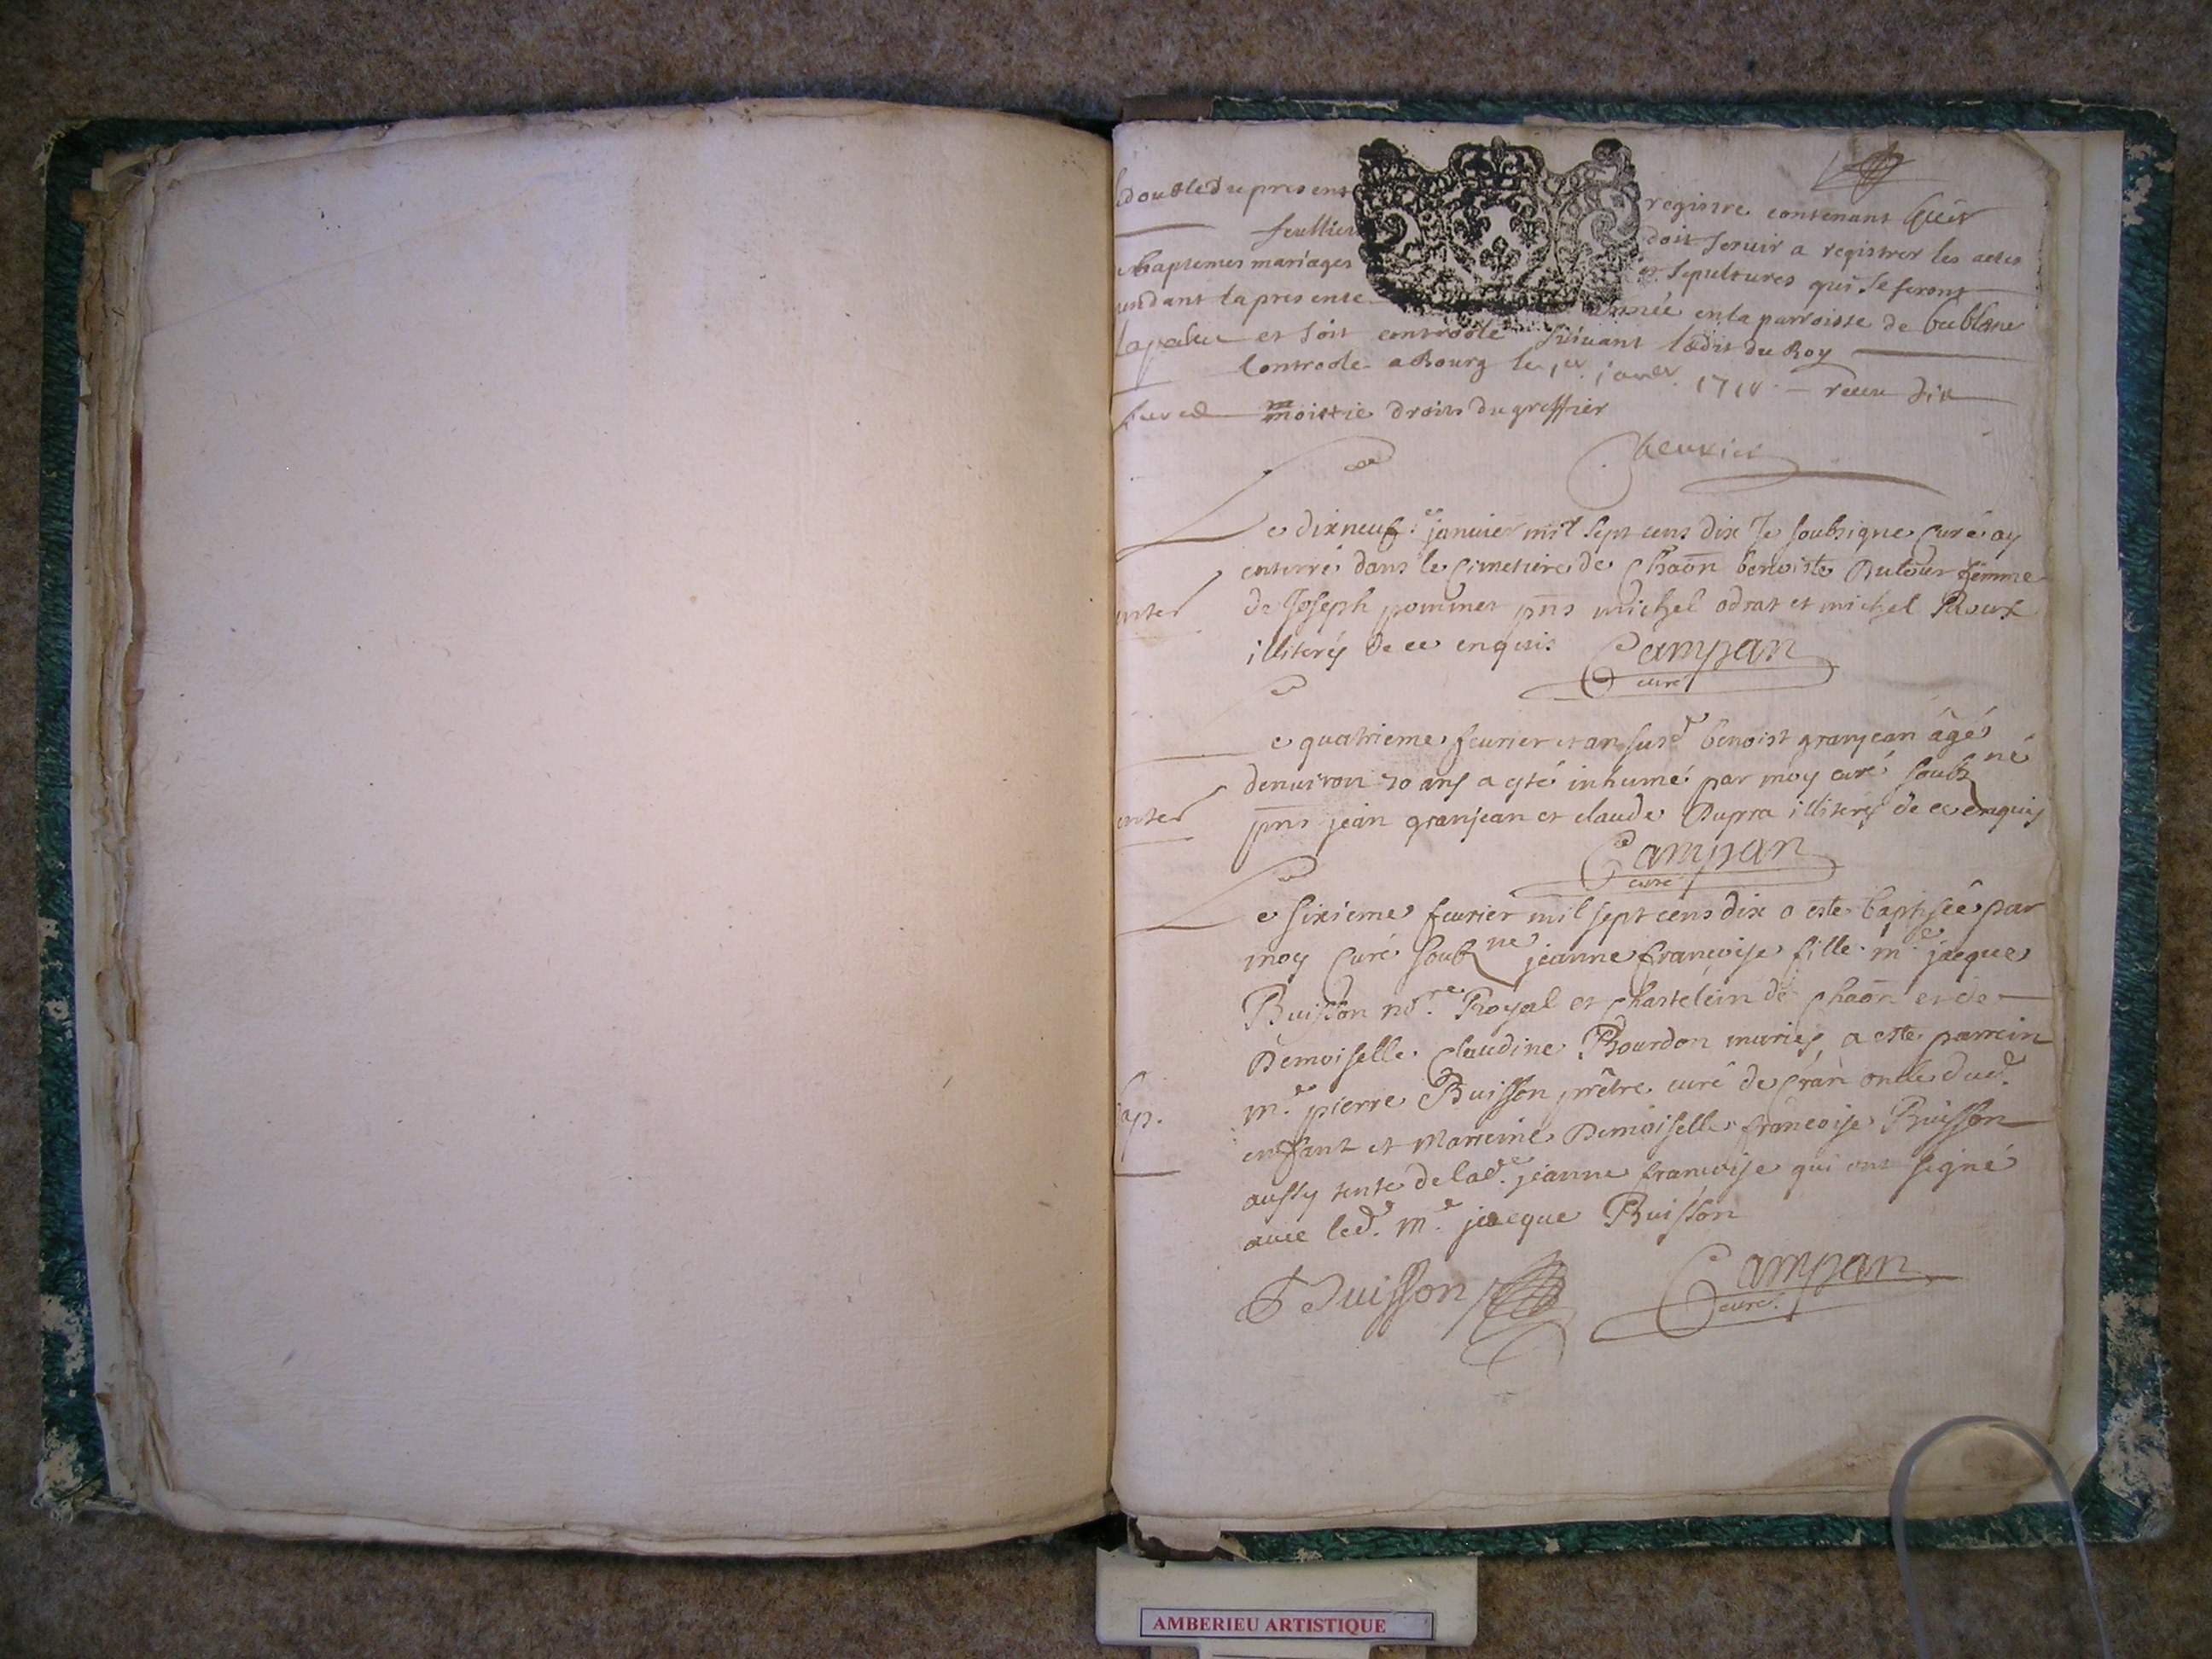 double du present registre contenant huit
feuillier doit servir a registrer les actes
baptemes mariages et sepultures qui se feront
pendant la presente année en la parroisse de bublane
et soit controolé suivant l'edit du Roy
Controole a Bourg le 1er janer 1710 receu dix
moittie droits du greffier
Le dixneufe janvier mil sept cens dix Je soubsigne curé ay
enterré dans le cimetiere de Chaōn benoiste Dutour femme
enter
de Joseph pommet pn̄s michel odrat et michel Roux
illiterés de ce enquis
Campan
curé
Le quatrieme feurier et an susd benoist granjean âgé
denuiron 70 ans a esté inhumé par moy curé soubzné
enter
pn̄s jean granjean et claude Dupra illiterés de ce enquis
Campan
curé
Le sixieme feurier mil sept cens dix a esté baptisée par
moy curé soubzne jeanne françoise fille me jacque
Buisson nore Royal et chastelein de chaōn et de
Demoiselle claudine Bourdon mariés, a esté parrein
me pierre Buisson prêtre curé de cran oncle dud.
bap.
enfant et Marreine Demoiselle francoise Buisson
aussy tente de lade. jeanne francoise qui ont signé
auec led. me jacque Buisson
Buisson
Campan
curé
AMBERIEU ARTISTIQUE